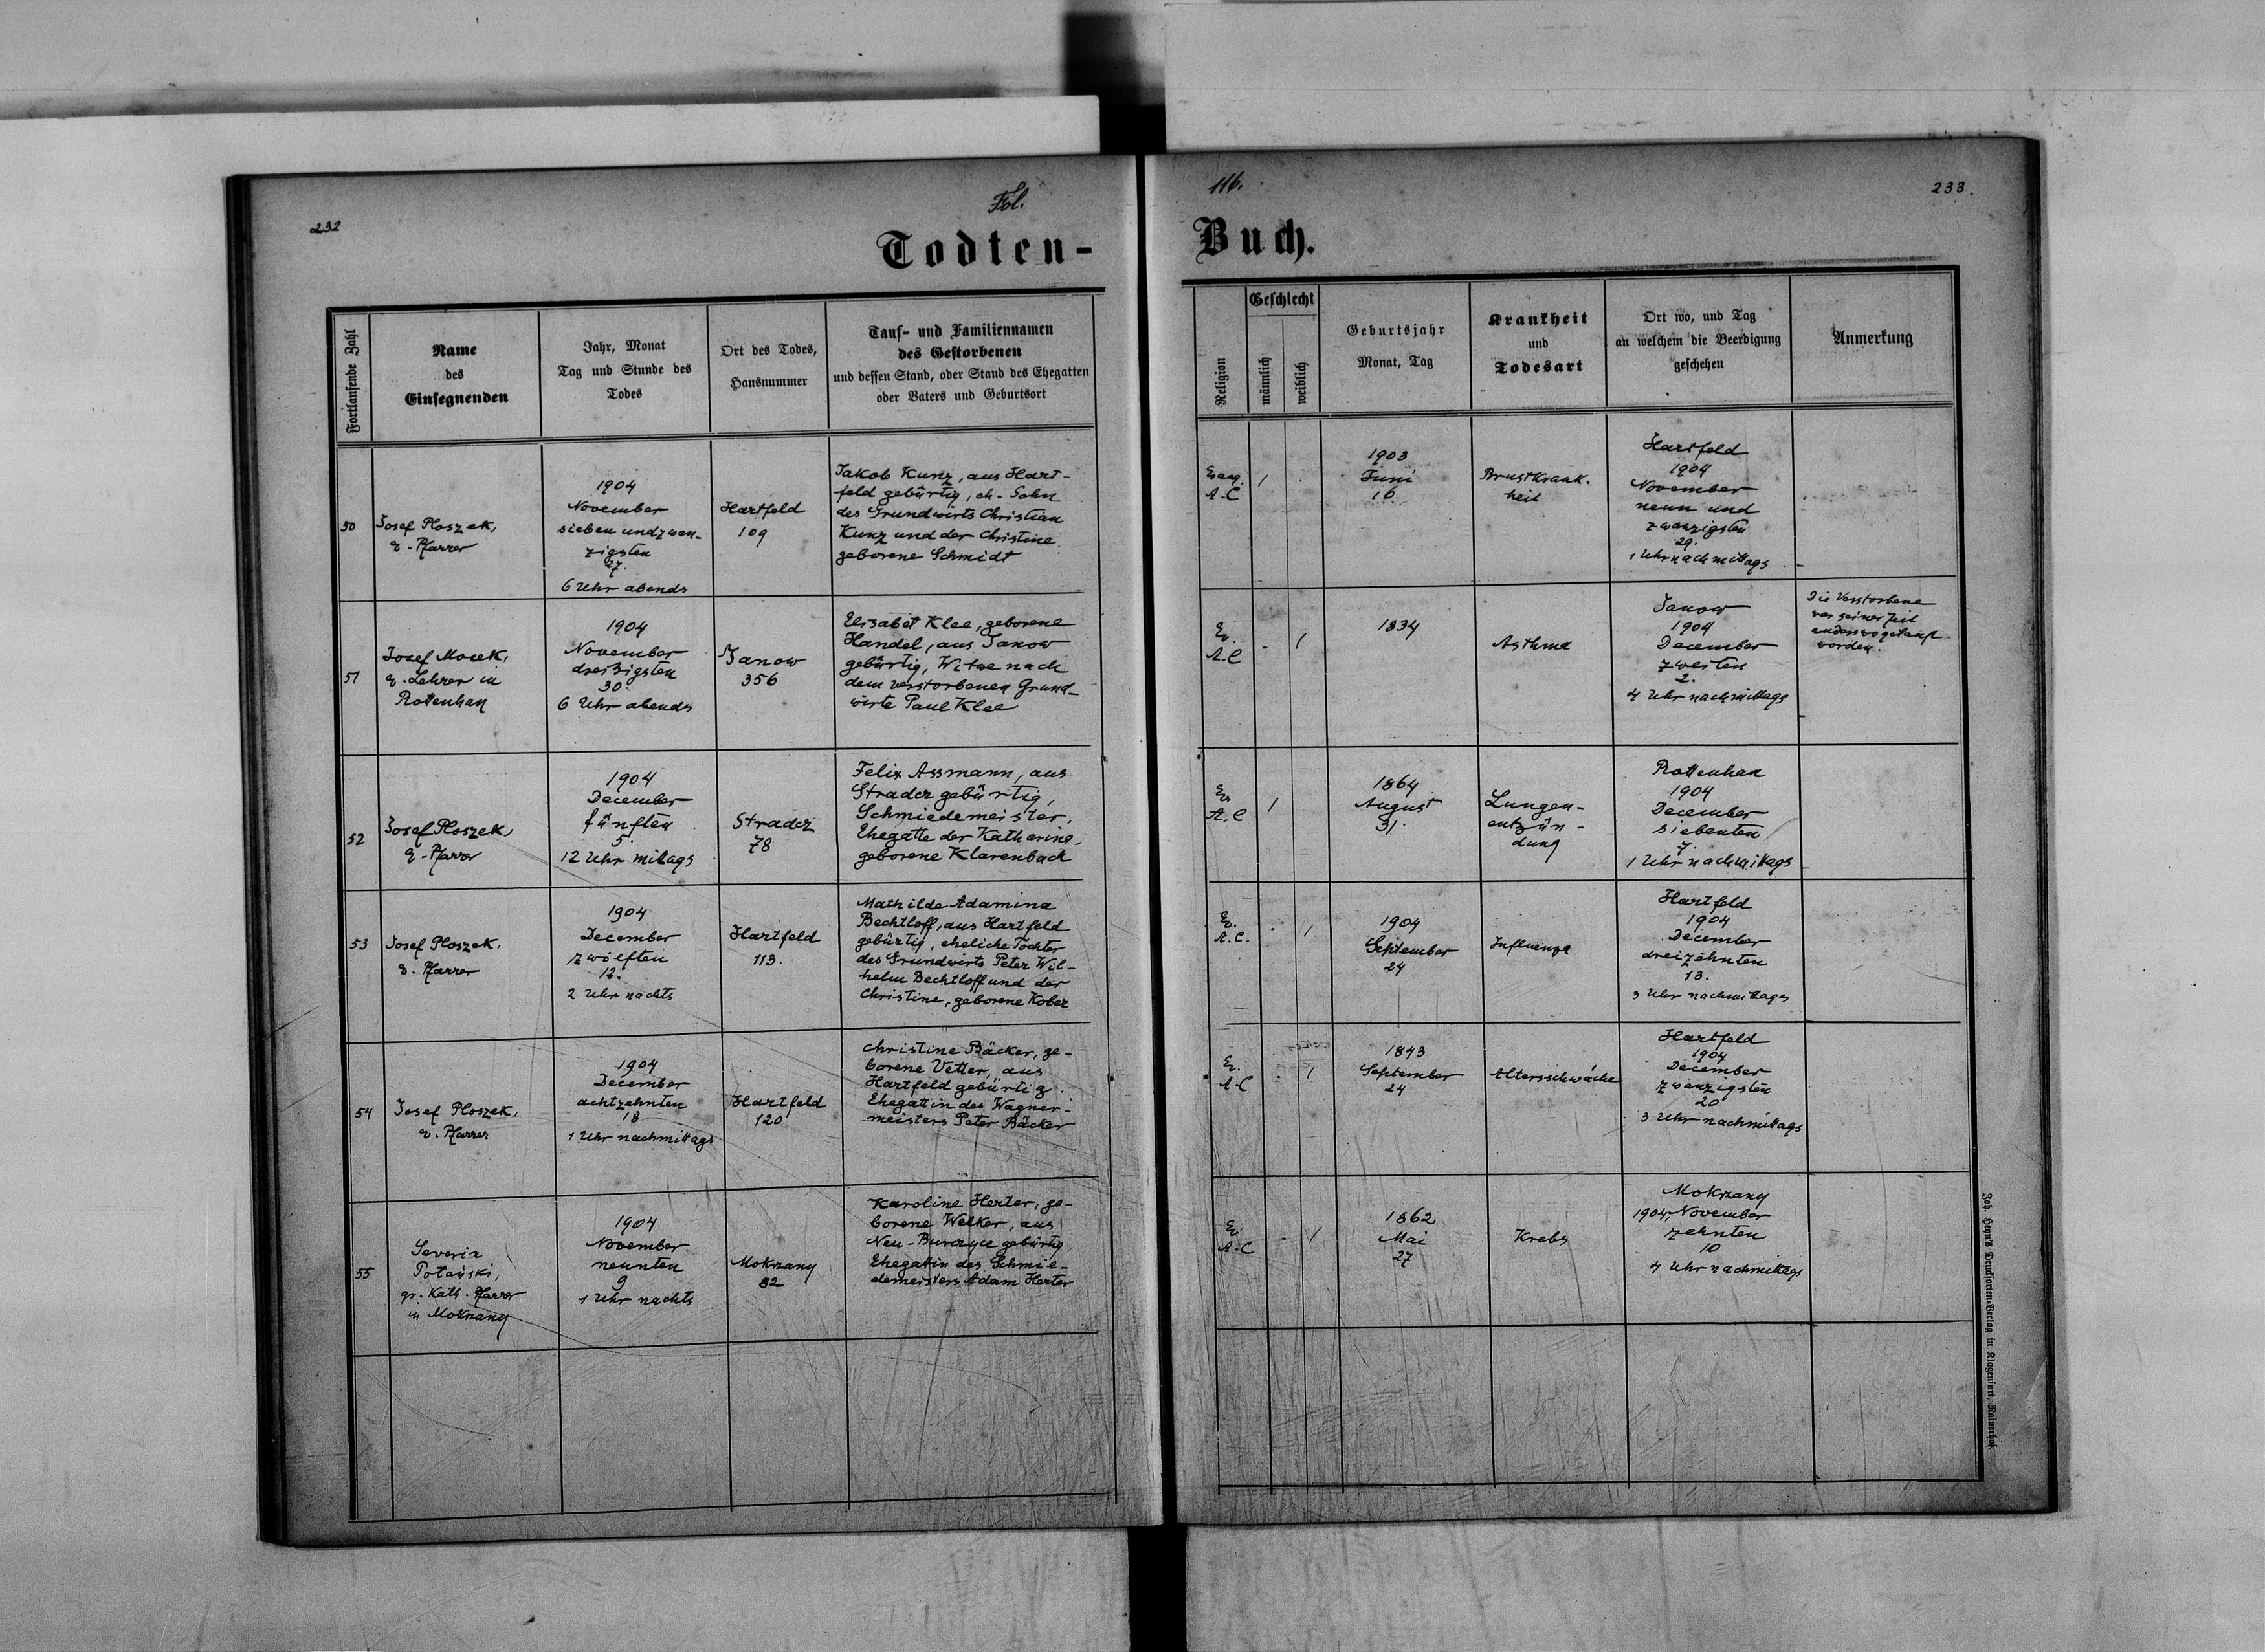 232
Fol.
Todten-
116.
233.
Buch.
Fortlaufende Zahl
Name
des
Einsegnenden
Jahr, Monat
Tag und Stunde des
Todes
Ort des Todes,
Hausnummer
Tauf- und Familiennamen
des Gestorbenen
und dessen Stand, oder Stand des Ehegatten
oder Vaters und Geburtsort
Religion
Geschlecht
männlich
weiblich
Geburtsjahr
Monat, Tag
Krankheit
und
Todesart
Ort wo, und Tag
an welchem die Beerdigung
geschehen
Anmerkung
50
Josef Ploszek,
e. Pfarrer
1904
November
sieben undzwan-
zigsten
27.
6 Uhr abends
Hartfeld
109
Jakob Kunz, aus Hart-
feld gebürtig, eh. Sohn
des Grundwirts Christian
Kunz und der Christine
geborene Schmidt
Evang.
A.C
1
1903
Juni
16
Brustkrank-
heit
Hartfeld
1904
November
neun und
zwanzigsten
29.
1 Uhr nachmittags
51
Josef Mocek,
e. Lehrer in
Rottenhan
1904
November
dreißigsten
30.
6 Uhr abends
Janow
356
Elisabet Klee, geborene
Handel, aus Janow
gebürtig, Witwe nach
dem verstorbenen Grund-
wirte Paul Klee
Ev.
A.C
-
1
1834
Asthma
Janow
1904
December
zweiten
2.
4 Uhr nachmittags
Die Verstorbene
war seiner Zeit
anderswo getauft
worden.
52
Josef Ploszek,
e. Pfarrer
1904
December
fünften
5.
12 Uhr mittags
Stradcz
78
Felix Assmann, aus
Stradcz gebürtig,
Schmiedemeister,
Ehegatte der Katharina,
geborene Klarenbach
Ev
A.C
1
1864
August
31.
Lungen-
entzün-
dung
Rottenhan
1904
December
siebenten
7.
1 Uhr nachmittags
53
Josef Ploszek,
e. Pfarrer
1904
December
zwölften
12.
2 Uhr nachts
Hartfeld
113.
Mathilde Adamina
Bechtloff, aus Hartfeld
gebürtig, eheliche Tochter
des Grundwirts Peter Wil-
helm Bechtloff und der
Christine, geborene Kober
Ev.
A.C.
-
1
1904
September
24
Influenza
Hartfeld
1904
December
dreizehnten
13.
3 Uhr nachmittags
54
Josef Ploszek,
e. Pfarrer
1904
December
achtzehnten
18
1 Uhr nachmittags
Hartfeld
120
Christine Bäcker, ge-
borene Vetter, aus
Hartfeld gebürtig.
Ehegattin des Wagner-
meisters Peter Bäcker
Ev.
A.C
-
1
1843
September
24
Altersschwäche
Hartfeld
1904
December
zwanzigsten
20
3 Uhr nachmittags
55
Severin
gr. kath. Pfarrer
in Mokrzany
1904
November
neunten
9
1 Uhr nachts
Mokrzany
82
Karoline Herter, ge-
borene Welker, aus
gebürtig,
Ehegattin des Schmie-
demeisters Adam Herter
Ev
A.C
-
1
1862
Mai
27
Krebs
Mokrzany
1904, November
zehnten
10
4 Uhr nachmittags
Joh. Heyn's Drucksorten-Verlag in Klagenfurt, Rainerhof.